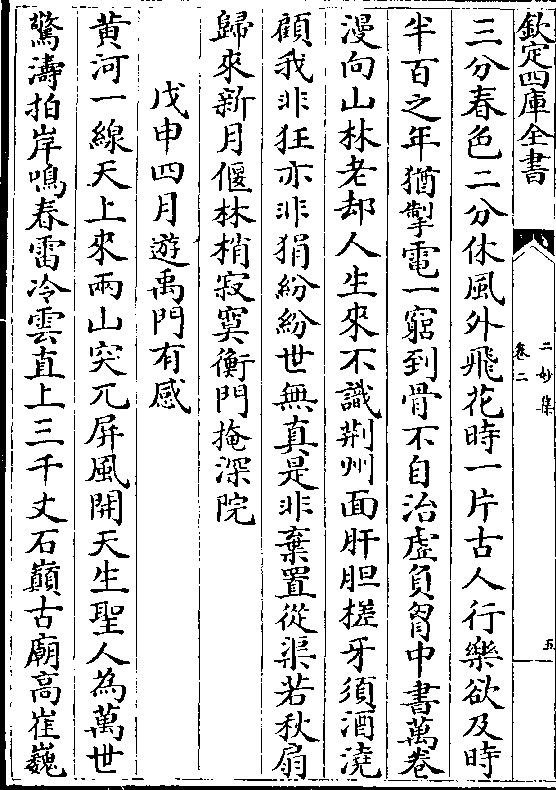 欽定四庫全書
二妙集
卷二
五
三分春色二分休風外飛花時一片古人行樂欲及時
半百之年猶掣電一窮到骨不自治虚負胷中書萬卷
漫向山林老却人生來不識荆州面肝胆槎牙須酒澆
顧我非狂亦非狷紛紛世無真是非棄置從渠若秋扇
歸來新月偃林梢寂寞衡門掩深院
戊申四月遊禹門有感
黄河一線天上來兩山突兀屏風開天生聖人為萬世
驚濤拍岸鳴春雷冷雲直上三千丈石巔古廟高崔巍